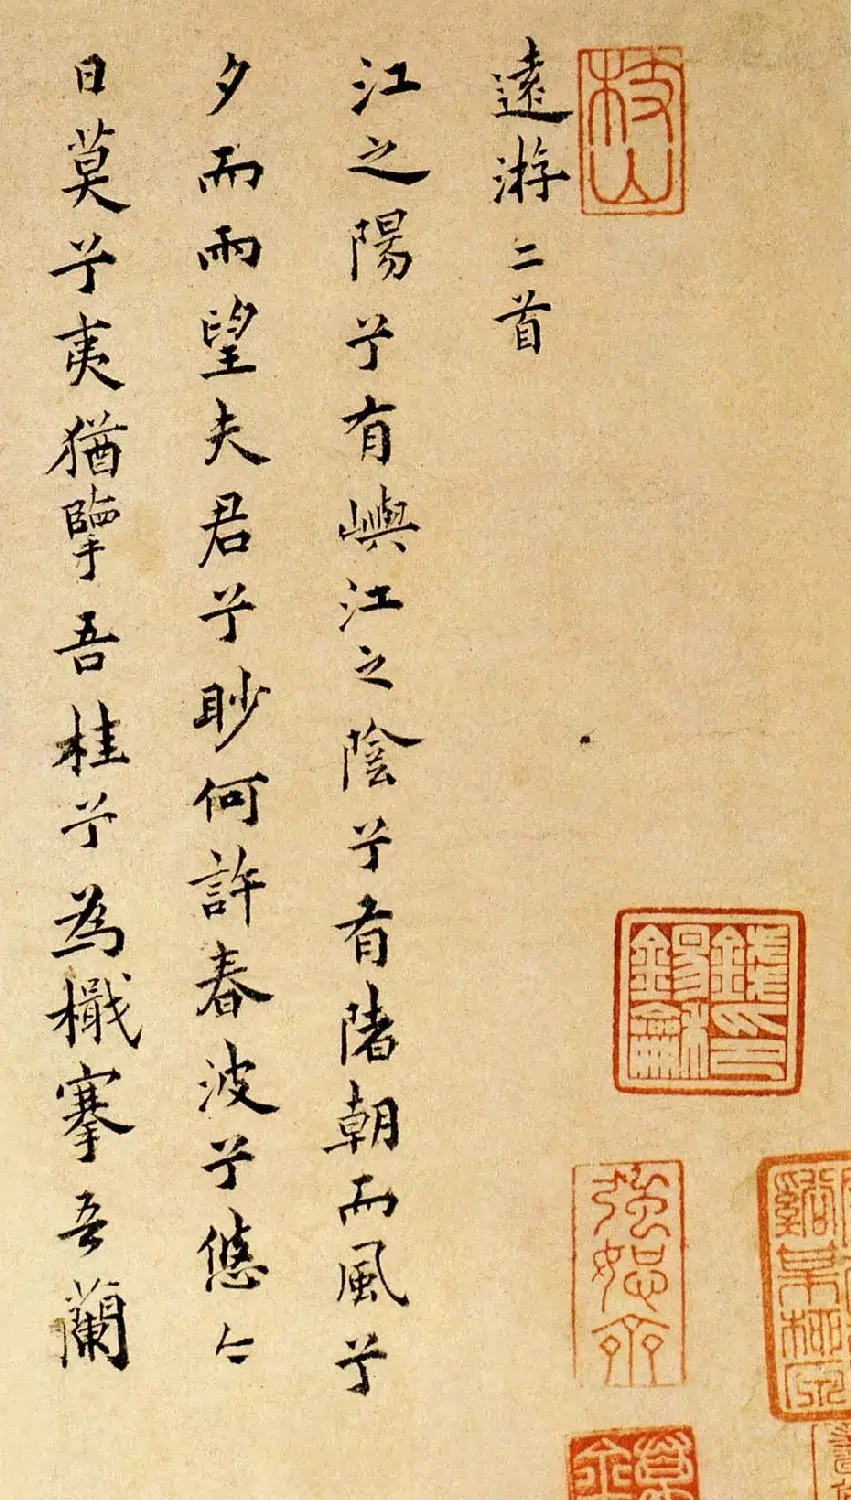 枝山
遠游二首
江之陽兮有嶼江之陰兮有陼朝而風兮
夕而雨望夫君兮眇何許春波兮悠〻
日莫兮夷猶擥吾桂兮為檝搴吾蘭
強恕齋